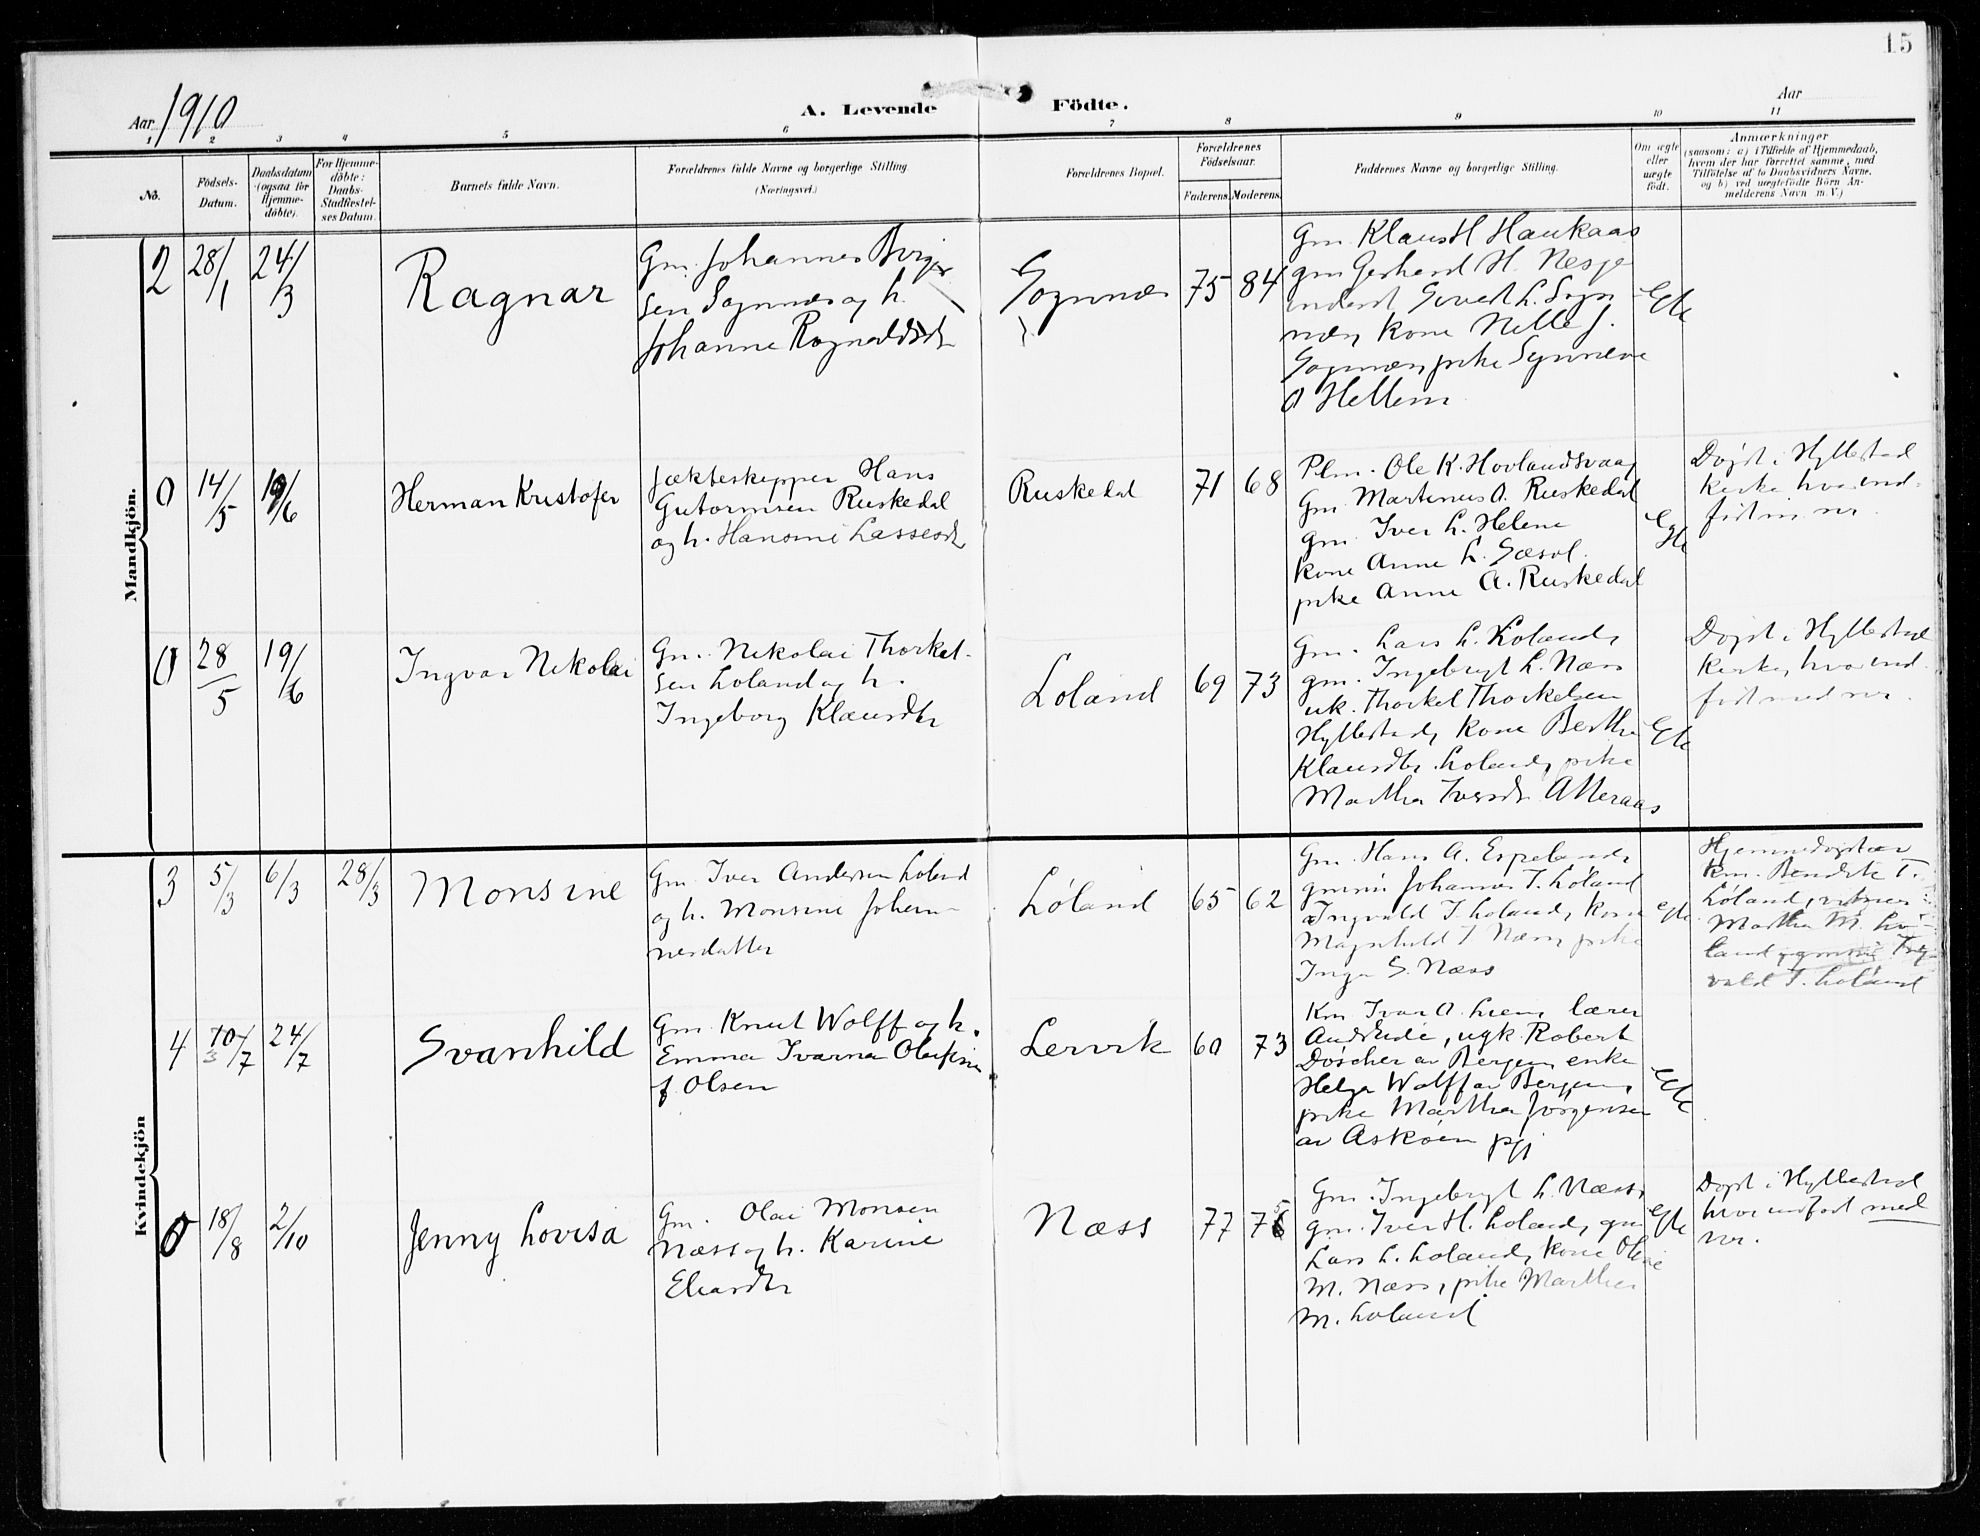 15
Aar 1910
A. Levende Födte.
Aar
1 2 3 4 5 6 7 8 9 10 11
No.
Födsels-
Datum.
Daabsdatum
(ogsaa for
Hjemme-
döbte).
For Hjemme-
döbte:
Daabs-
Stadfæstel-
ses Datum.
Barnets fulde Navn.
Forældrenes fulde Navne og borgerlige Stilling
(Næringsvei.)
Forældrenes Bopæl.
Forældrenes
Födselsaar.
Faderens. Moderens.
Faddernes Navne og borgerlige Stilling.
Om ægte
eller
uægte
födt.
Anmærkninger
(saasom: a) i Tilfælde af Hjemmedaab,
hvem der har forrettet samme, med
Tilföielse af to Daabsvidners Navne,
og b) ved uægtefödte Börn An-
melderens Navn m. V.)
Mandkjön.
2 28/1 24/3
Ragnar
Gm. Johannes Birger
sen Sognnæs og h.
Johanne Ragnvaldsdtr
Sognnæs
75 84
Gm. Klaus H Haukaas
gm Gerhard H. Nesje
Sivert L. Sogn
næs, kone Nille J.
Sognnæs, pike Synneve
O Hellem
Egte
0 14/5 19/6
Herman Kristofer
Jækteskipper Hans
Gutormsen Ruskedal
og h. Hansine Lassesdtr
Ruskedal
71 68
Plm. Ole K. Hovlandsvaag
Gm. Martinus A. Ruskedal
gm. Iver L. Helene
kone Anne L. Sæsol.
pike Anne A. Ruskedal
Egte
Døpt i Hyllestad
kirke, hvor ind-
ført m. nr.
0 28/5 19/6
Ingvar Nikolai
Gm. Nikolai Thorkel-
sen Loland og h.
Ingeborg Klausdtr
Loland
69 73
Gm. Lars L. Loland,
gm. Ingebrigt L. Næss
uk. Thorkel Thorkelsen
Hyllestad, kone Berthe
Klausdtr. Loland, pike
Martha Iversdtr Atteraas
Egte
Døpt i Hyllestad
kirke, hvor ind-
ført med nr.
Kvindekjön
3 5/3 6/3 28/3
Monsine
Gm. Iver Andersen Loland
og h. Monsine Johan-
nesdatter
Løland
65 62
Gm. Hans A. Espeland,
Johannes I. Løland
Ingvald I. Loland, kone
Magnhild I Næss, pike
Inga S. Næss
egte
Hjemmedøpt av
km. Bendikte T.
Løland, vitner
Martha M. Lø-
land, Ing-
vald I. Loland
4 10/7 24/7
3
Svanhild
Gm. Knut Wolff og h.
Emma Ivarna Olufine
f. Olsen
Lervik
60 73
Km Ivar A. Lien, lærer
And. Eide, ugk. Robert
Døscher av Bergen, enke
Helga Wolff av Bergen,
pike Martha Jørgensen
av Askøen pgj
Egte
0 18/8 2/10
Jenny Lovisa
Gm. Olai Monsen
Næss og h. Karine
Eliasdtr
Næss
77 76
5
Gm. Ingebrigt L. Næss,
gm. Iver H. Loland, gm
Lars L. Loland, kone Oline
M. Næss, pike Martha
M. Loland
Egte
Døpt i Hyllestad
hvor indført med
nr.